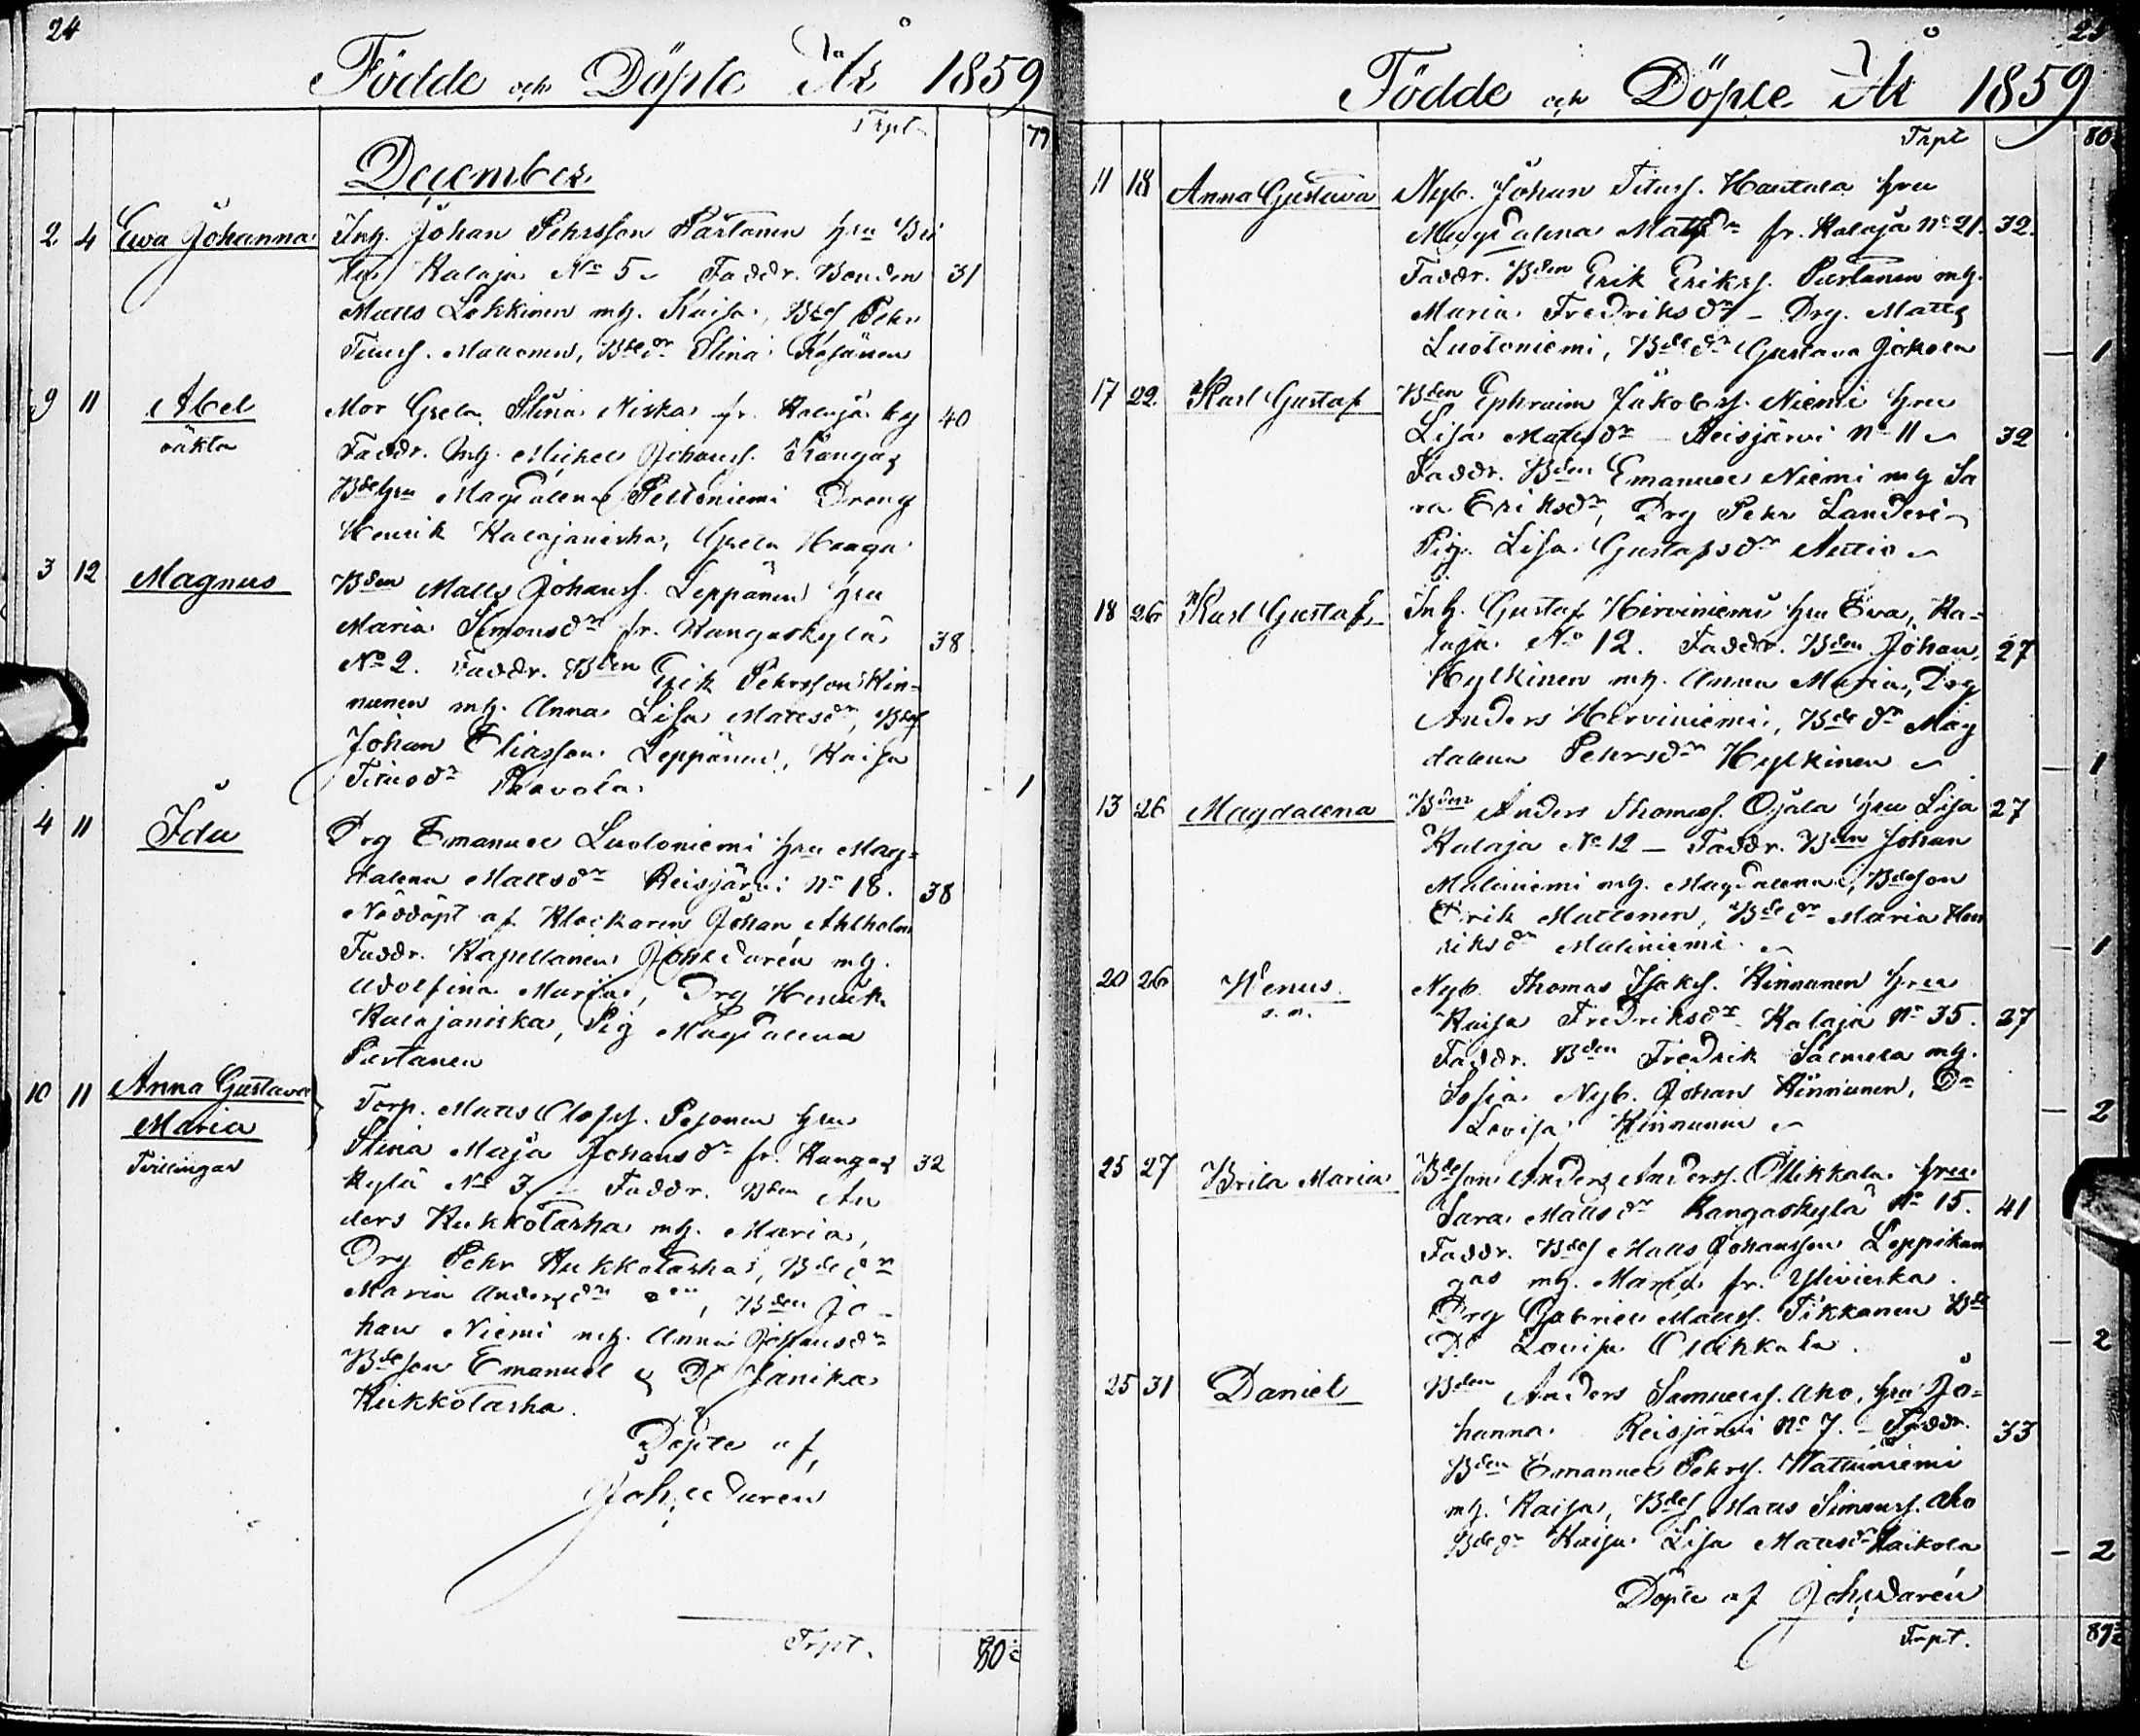 24
Födde och Döpte År 1859
Trpt 79
December
2 4 Ewa Johanna Inh. Johan Pehrsson Partanen hru Bri
ta Kalaja No 5 Faddr. Bonden 31
Matts Lokkinen mh. Kaisa, Bdes Pehr
Titus. Mattonen, Bdedr Stina
9 11 Abel Mor Greta Stina Niska fr. Kalaja by 40
oäkta Faddr. Inh. Mickel Johanss. Kangas
Bdehru Magdalena Peltoniemi Dreng
Henrik Kalajaniska, Greta Haaga
3 12 Magnus Bden Matts Johanss. Leppänen hru
Maria Simonsdr fr. Kangaskylä 38
No 2. Faddr. Bden Erik Pehrsson Kin-
nunen mh. Anna Lisa Mattsdr, Bdes
Johan Eliasson Leppänen, Kaisa
Titusdr Paavola 1
4 11 Ida Drg Emanuel Luotoniemi hru Mag-
dalena Mattsdr Reisjärvi No 18. 38
Nöddöpt af Klockaren Johan Ahlholm
Faddr. Kapellanen Joh. Durén mh.
Adolfina Maria, Drg Henrik
Kalajaniska, Pig Magdalena
Partanen
10 11 Anna Gustava
Maria Torp. Matts Pesonen hru
Tvillingar Stina Maja Johansdr fr. Kangas 32
kylä No 3. Faddr. Bden An
ders Kukkotarha mh. Maria,
Drg Pehr Kukkotarha, Bdedr
Maria Andersdr, Bden Jo-
han Niemi mh. Anna Johansdr
Bdeson Emanuel & Dr Janika
Kukkotarha.
Döpte af
Joh. Durén
Trpt. 80
25
Födde och Döpte År 1859
Trpt 80
11 18 Anna Gustava Nyb. Johan Tituss. Hautala hru
Magdalena Mattsdr fr. Kalaja No 21. 32.
Faddr. Bden Erik Erikss. Partanen mh.
Maria Fredriksdr - Drg. Matts
Luotoniemi, Bdedr Gustava Jokela 1
17 22. Karl Gustaf Bden Ephraim Jakobs. Niemi hru
Lisa Mattsdr Reisjärvi No 11 32
Faddr. Bden Emanuel Niemi mh Sa
ra Eriksdr, Drg Pehr Landeri
Pig. Lisa Gustafsdr Anttio
18 26 Karl Gustaf Inh. Gustaf Hirviniemi hru Eva, Ka-
laja No 12. Faddr. Bden Johan 27
Hylkinen mh. Anna Maria, Drg
Anders Hirviniemi, Bdedr Mag
dalena Pehrsdr Hylkinen 1
13 26 Magdalena Bden Anders Thomass. Ojala hru Lisa 27
Kalaja No 12 - Faddr. Bden Johan
Maliniemi mh. Magdalena, Bdeson
Erik Mattonen, Bdedr Maria Hen
riksdr Maliniemi 1
20 26 Wenus Nyb. Thomas Isaks. Kinnunen hru
Kaisa Fredriksdr Kalaja No 35. 27
Faddr. Bden Fredrik Salmela mh.
Sofia Nyb. Johan Kinnunen, Dr
Lovisa Kinnunen 2
25 27 Brita Maria Bdeson Anders Anderss. Ollikkala hru
Sara Mattsdr Kangaskylä No 15. 41
Faddr. Bdes Matts Johansson Leppikan
gas mh. Maria fr. Ylivieska.
Drg Gabriel Matts. Tikkanen Bde
Dr Lovisa Ollikkala. 2
25 31 Daniel Bden Anders Samuels. Aho, hru Jo-
hanna Reisjärvi No 7. - Faddr. 33
Bden Emanuel Pehrs. Mattiniemi
mh. Kaisa, Bdes Matts Simons. Aho
Bdedr Kaisa Lisa Mattsdr 2
Döpte af Joh. Durén
Trpt. 89